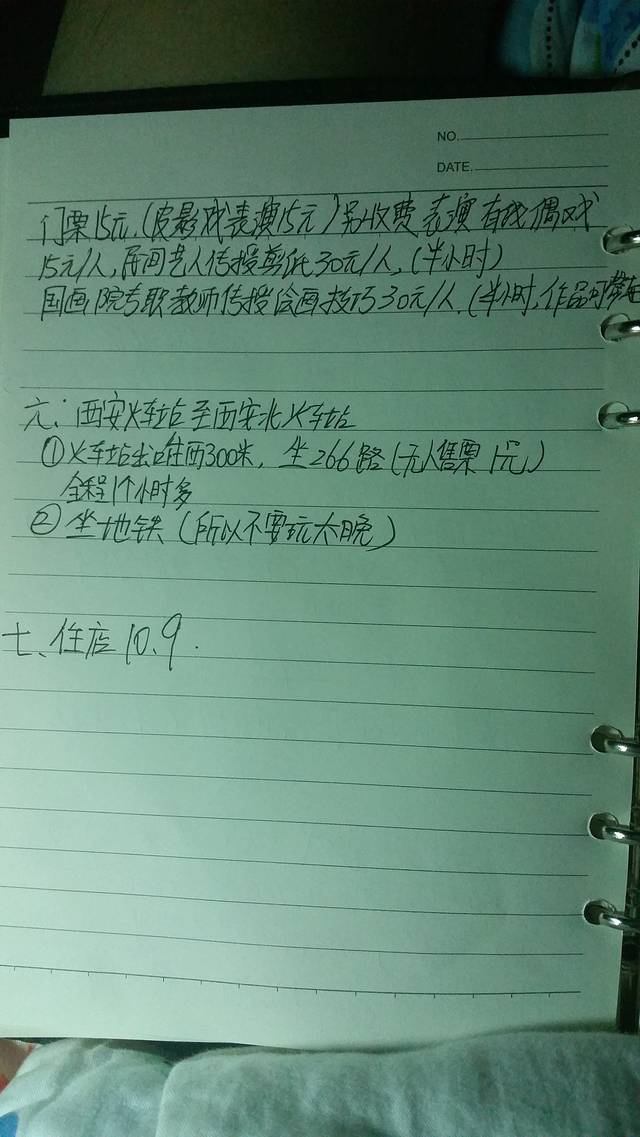 NO.
DATE.
门票15元.(皮影戏表演15元)另收费 表演有线偶戏
15元/人,民间艺人传授剪纸30元/人,(半小时)
国画院专职教师传授绘画技巧30元/人.(半小时,作品可带
六、西安火车站至西安北火车站
①火车站出口往西300米, 坐266路(无人售票 1元)
全程1个小时多
②坐地铁(所以不要玩太晚)
七、住店10、9.